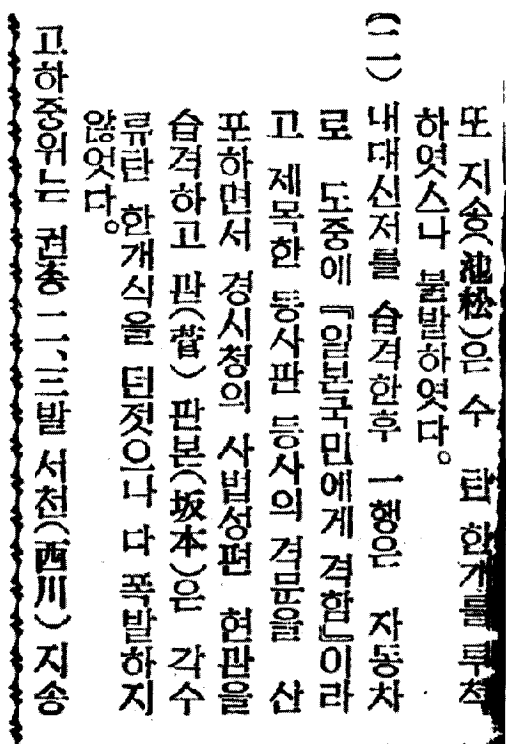 또 지송(池松)은 수 탄 한개를 투척
하엿스나 불발하엿다。
(二) 내대신저를 습격한후 一행은 자동차
로 도중에 『일본국민에게 격함』이라
고 제목한 등사판 등사의 격문을 산
포하면서 경시청의 사법성편 현관을
습격하고 관(菅) 판본(坂本)은 각수
류탄 한개식을 던젓으나 다 폭발하지
않엇다。
고하중위는 권총 二、三발 서천(西川) 지송